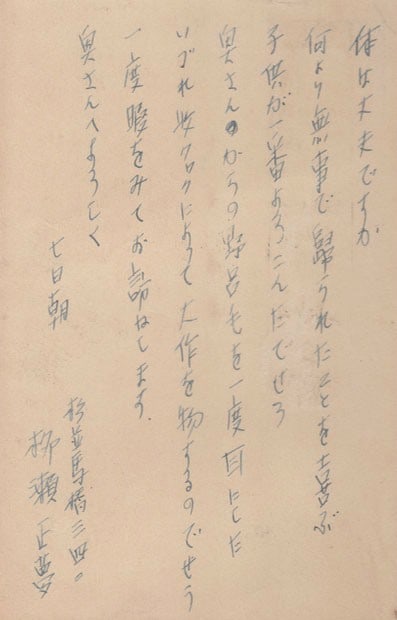 体は大丈夫ですか
何より無事で帰られたことを喜ぶ
子供が一番よろこんだでせう
奥さんからの野呂も一度耳にした
いづれ によって大作を物するのでせう
一度暇をみてお訪ねします.
奥さんへよろしく
七日朝
杉並馬橋三四〇
柳瀬正夢